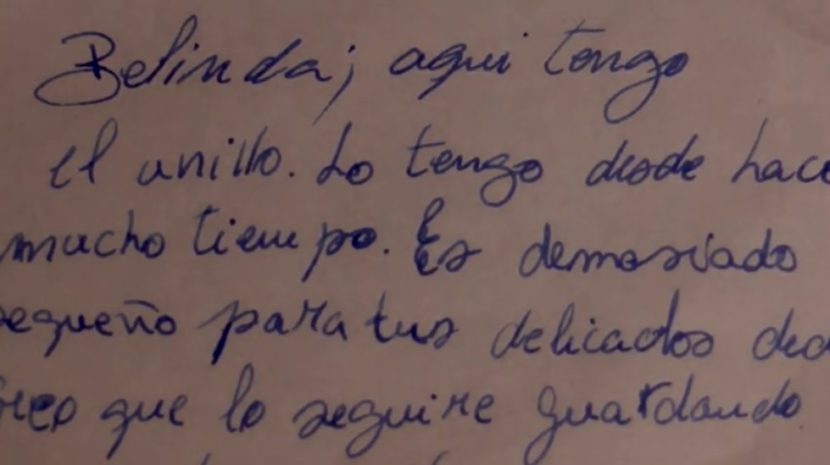 Belinda; aqui tengo
el anillo. Lo tengo desde hace
mucho tiempo. Es demasiado
pequeño para tus delicados ded
creo que lo seguire guardando